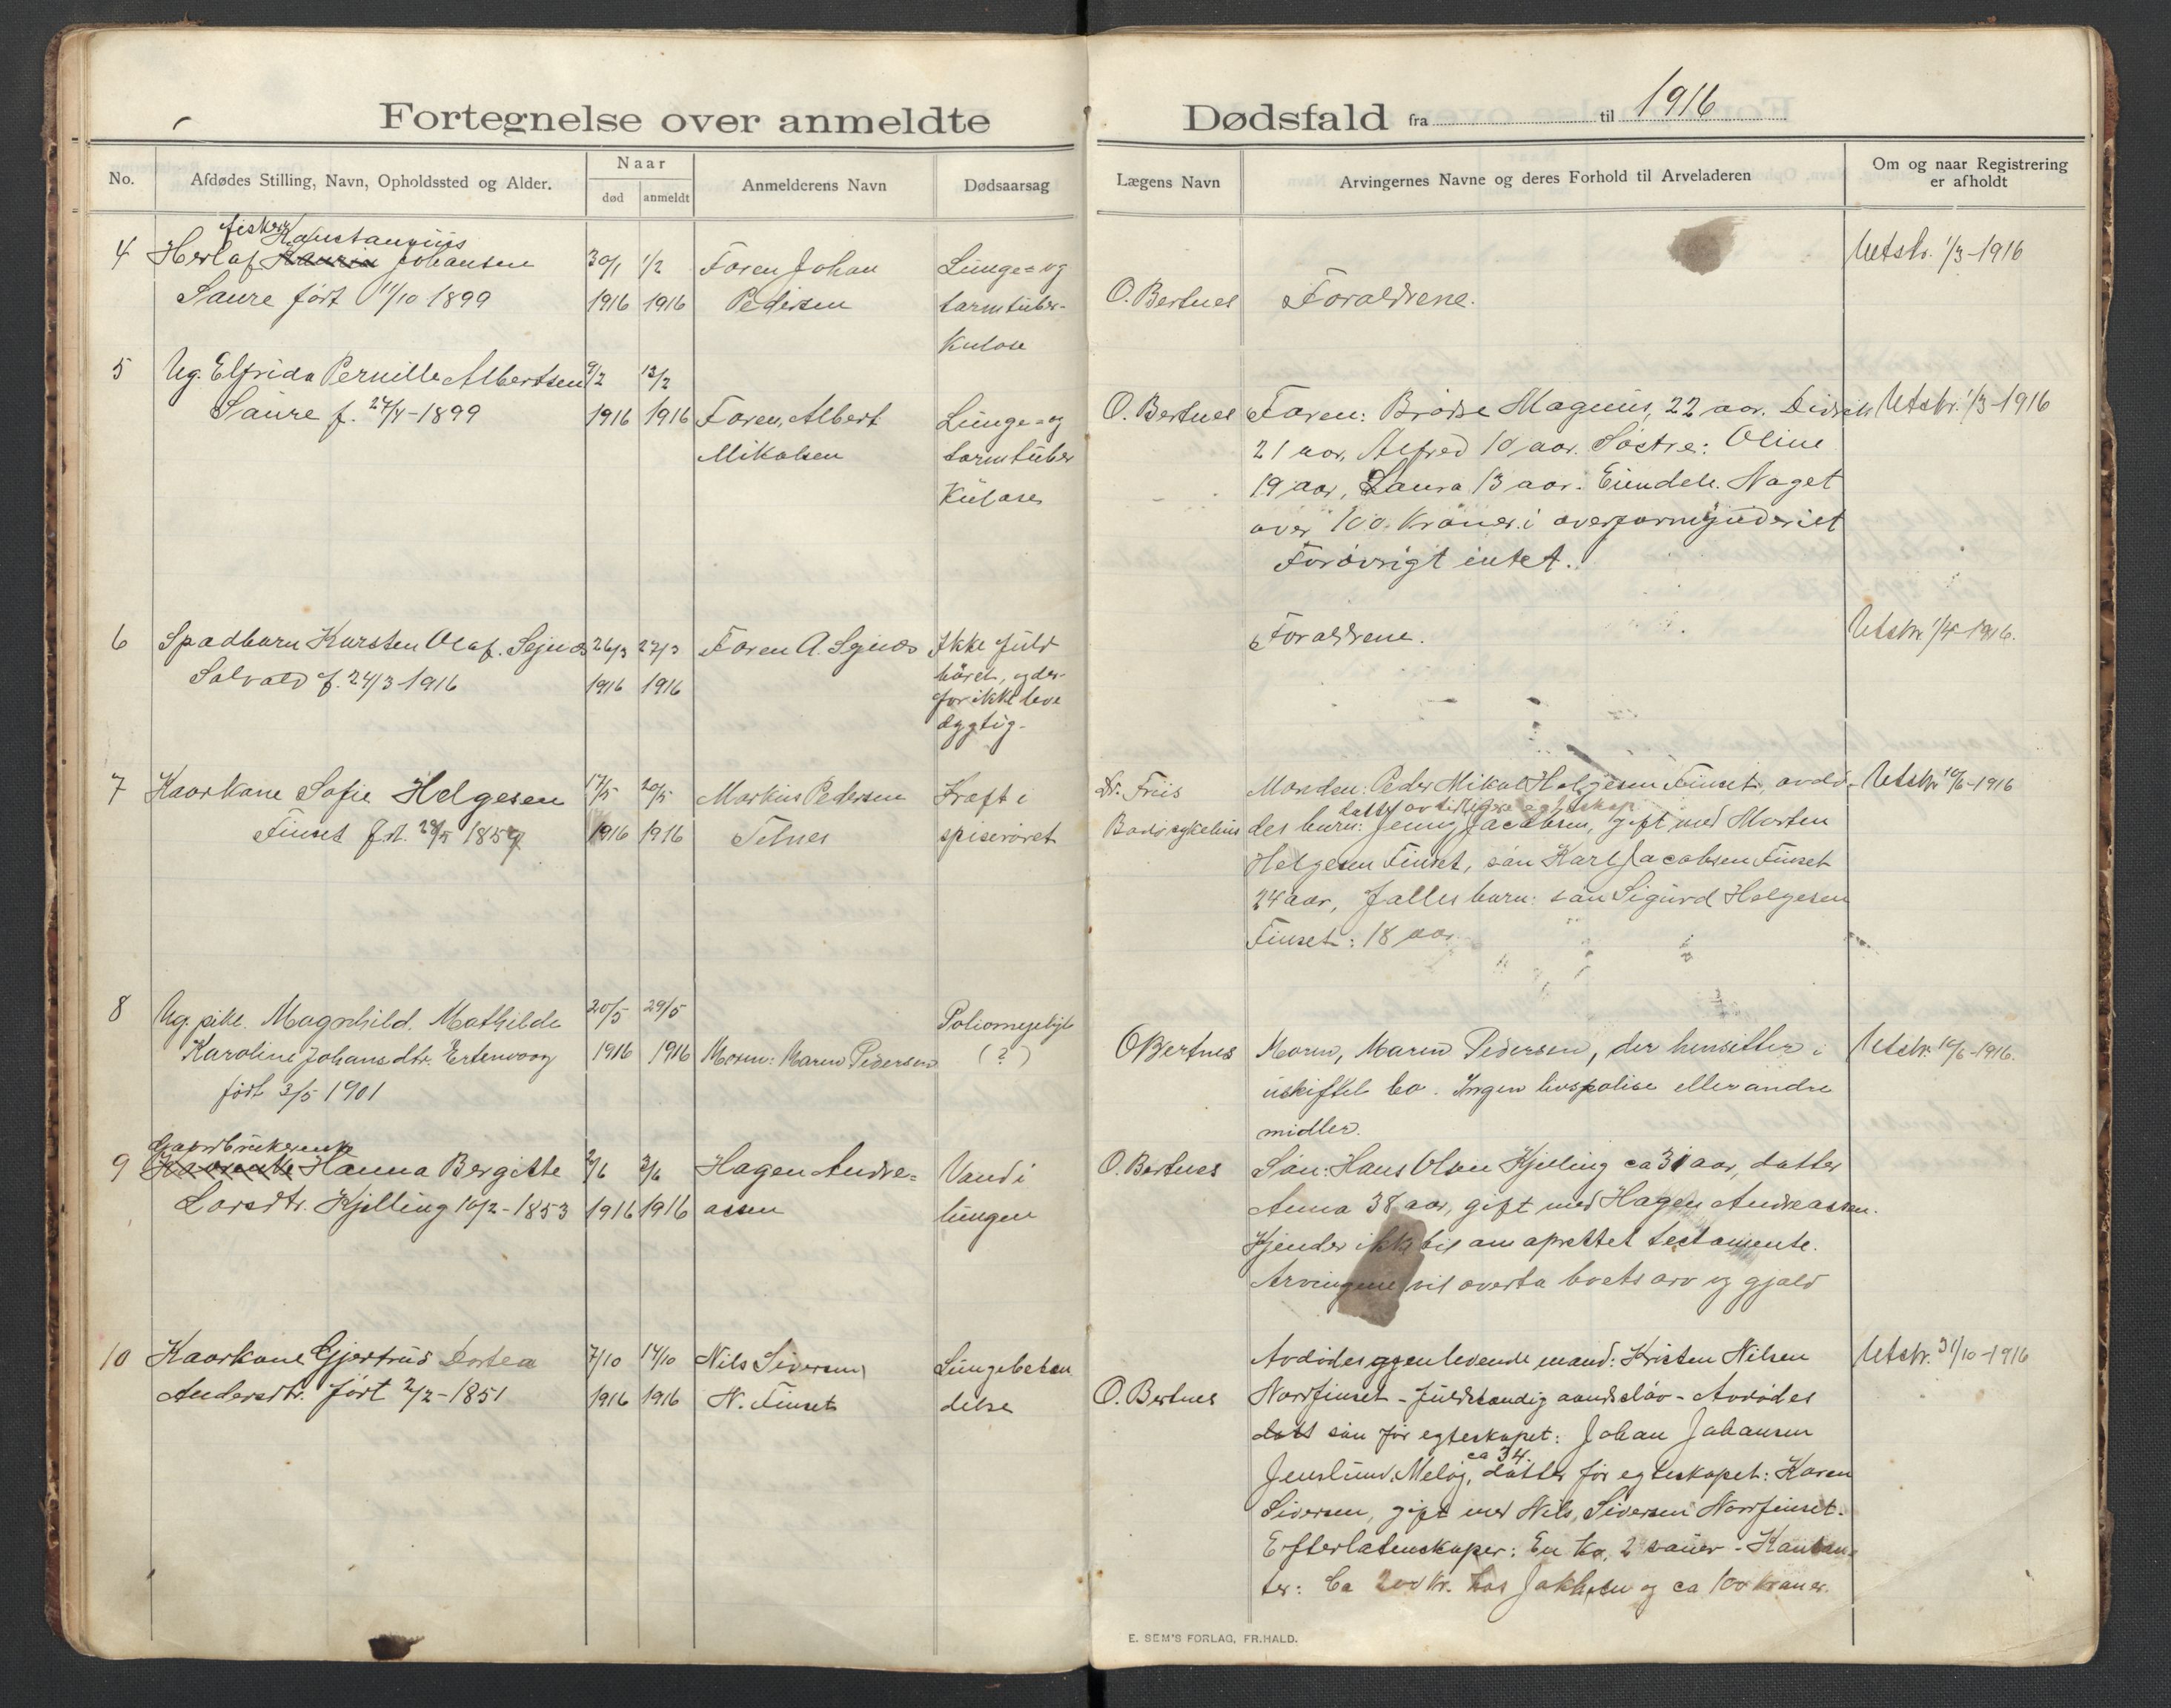 Fortegnelse over anmeldte
Dødsfald fra til 1916
No.
Afdødes Stilling, Navn, Opholdssted og Alder.
Naar
død
anmeldt
Anmelderens Navn
Dødsaarsag
Lægens Navn
Arvingernes Navne og deres Forhold til Arveladeren
Om og naar Registrering
er afholdt
4
fisker Konstantinus
Herlaf Johansen
Saure født 11/10 1899
30/1
1916
1/2
1916
Faren Johan
Pedersen
Lunge= og
tarmtuber-
kulose
O. Bertnes
Forældrene.
Utskr. 1/3-1916
5
Ug. Elfrida Pernille Albertsen
Saure f. 1899
9/2
1916
12/2
1916
Faren, Albert
Mikalsen
Lunge=og
tarmtuber
kulose
O. Bertnes
Faren: Brødre Magnus, 22 aar. Didrik
21 aar, Alfred 10 aar. Søstre: Oline
19 aar, Laura 13 aar. Eiendele. Noget
over 100. kroner i overformynderiet
Forøvrigt intet.
Utskr. 1/3-1916
6
Spædbarn Karsten Olaf. Sejnæs
Salvold f. 24/3-1916
26/3
1916
27/3
1916
Faren A. Sejnæs
Ikke fuld
båret, og der-
for ikke leve
dygtig-
Forældrene.
Utskr. 1/4-1916.
7
Kaarkone Sofie Helgesen
Finset f.
17/5
1916
20/5
1916
Markus Pedersen
Selnes
Kræft i
spiserøret
Dr. Friis
Bodø sykehus
Manden: Peder Mikal Helgesen Finset, avdø-
datter av tidligere egteskap
des barn: Jenny Jacobsen, gift med Morten
Helgesen Finset, søn Karl Jacobsen Finset
24 aar, Fælles barn: søn Sigurd Helgesen
Finset: 18 aar
Utskr 10/6-1916
8
Ug. pike. Magnhild. Mathilde
Karoline Johansdtr. Ertenvaag
født 3/5 1901
20/5
1916
29/5
1916
Moren: Maren Pedersen
(?)
O Bertnes
Moren, Maren Pedersen, der hensitter i
uskiftet bo. Ingen livspolise eller andre
midler.
Utskr. 10/6-1916.
9
Gaardbrukerenke
Hanna Bergitte
Larsdtr. Kjelling 10/2-1853
2/6
1916
3/6
1916
Hagen Andre=
assen
Vand i
lungen
O. Bertnes
Søn: Hans Olsen Kjelling ca 31 aar, datter
Anna 38 aar, gift med Hagen Andreassen.
Kjender ikke til om oprettet testamente.
Arvingene vil overta boets arv og gjæld
10
Kaarkone Gjertrud Dortea
Andersdtr. født 2/2-1851
7/10
1916
14/10
1916
Nils Siversen
N. Finset
Lungebetæn
delse
O. Bertnes
Avdødes gjenlevende mand: Kristen Nilsen
Nordfinset - fuldstændig aandsløv - Avdødes
datt søn før egteskapet: Johan Johansen
ca 34.
Jenslund, Meløy, datter før egteskapet: Karen
Siversen, gift med Nils Siversen Nordfinset.
Efterlatenskaper: En ko, 2 sauer - Kontan-
ter: Ca 200 kr. hos og ca 100 kroner.
Utskr. 31/10-1916
E. SEM'S FORLAG, FR.HALD.